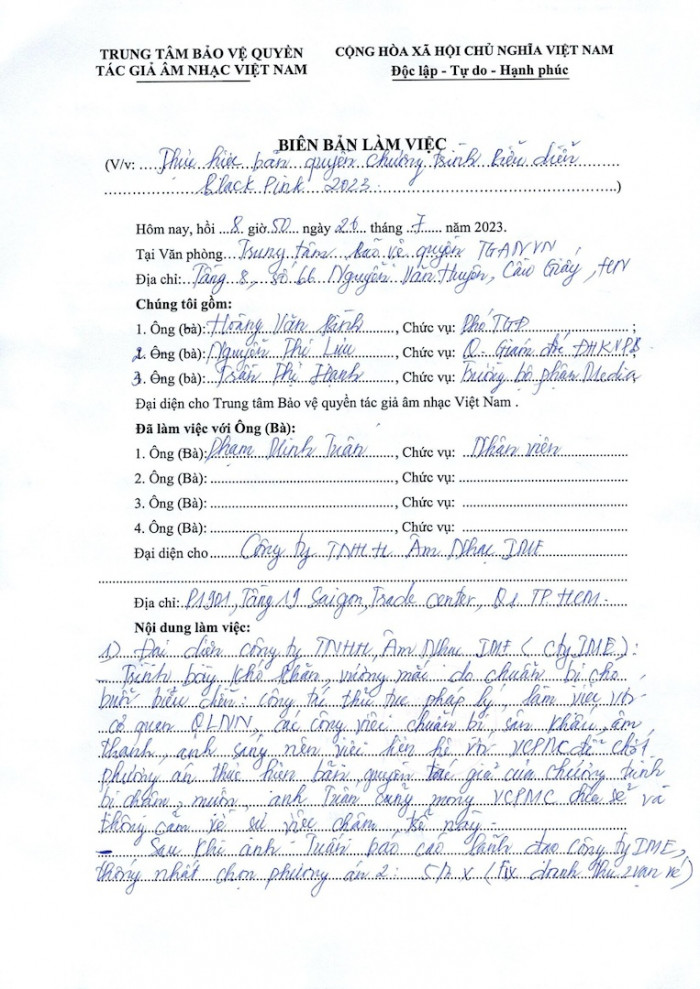 TRUNG TÂM BẢO VỆ QUYỀN
TÁC GIẢ ÂM NHẠC VIỆT NAM
CỘNG HÒA XÃ HỘI CHỦ NGHĨA VIỆT NAM
Độc lập - Tự do - Hạnh phúc
BIÊN BẢN LÀM VIỆC
(V/v: Thực hiện bản quyền chương trình biểu diễn
Black Pink 2023.)
Hôm nay, hồi 8 giờ 50 ngày 26 tháng 7 năm 2023.
Tại Văn phòng Trung tâm bảo vệ quyền TGANVN
Địa chỉ: Tầng 8, số 66 Nguyễn Văn Huyên, Cầu Giấy, HN
Chúng tôi gồm:
1. Ông (bà): Hoàng Văn , Chức vụ: Phó TGĐ ;
2. Ông (bà): Nguyễn Thị Lưu , Chức vụ: Q. Giám đốc
3. Ông (bà): Trần Thị Hạnh , Chức vụ: Trưởng bộ phận Media
Đại diện cho Trung tâm Bảo vệ quyền tác giả âm nhạc Việt Nam .
Đã làm việc với Ông (Bà):
1. Ông (Bà): Phạm Minh Tuấn , Chức vụ: Nhân viên
2. Ông (Bà): , Chức vụ:
3. Ông (Bà): , Chức vụ:
4. Ông (Bà): , Chức vụ:
Đại diện cho Công ty TNHH Âm Nhạc IME
Địa chỉ: P1901, Tầng 19 Saigon Trade center, Q1 TP. HCM.
Nội dung làm việc:
1) Đại diện công ty TNHH Âm Nhạc IME (cty IME):
- Trình bày khó khăn, vướng mắc do chuẩn bị cho
buổi biểu diễn: công tác thủ tục pháp lý, làm việc với
cơ quan QLNN, các công việc chuẩn bị, sân khấu, âm
thanh, ánh sáng nên việc liên hệ với VCPMC để chốt
phương án thực hiện bản quyền tác giả của chương trình
bị chậm, muộn, anh Tuấn cũng mong VCPMC chia sẻ và
thông cảm về sự việc chậm trễ này.
- Sau khi anh Tuấn báo cáo lãnh đạo công ty IME,
thống nhất chọn phương án 2: 5% x (fix doanh thu 2 vạn vé)